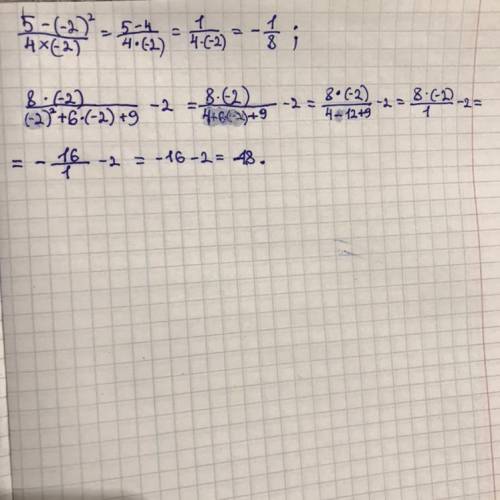 (5-(-2)²)/(4×(-2)) = (5-4)/(4·(-2)) = 1/(4·(-2)) = -1/8 ;
(8·(-2))/((-2)²+6·(-2)+9) -2 = (8·(-2))/(4+6(-2)+9) -2 = (8·(-2))/(4-12+9) -2 = (8·(-2))/1 -2 =
= -16/1 -2 = -16-2 = -18.